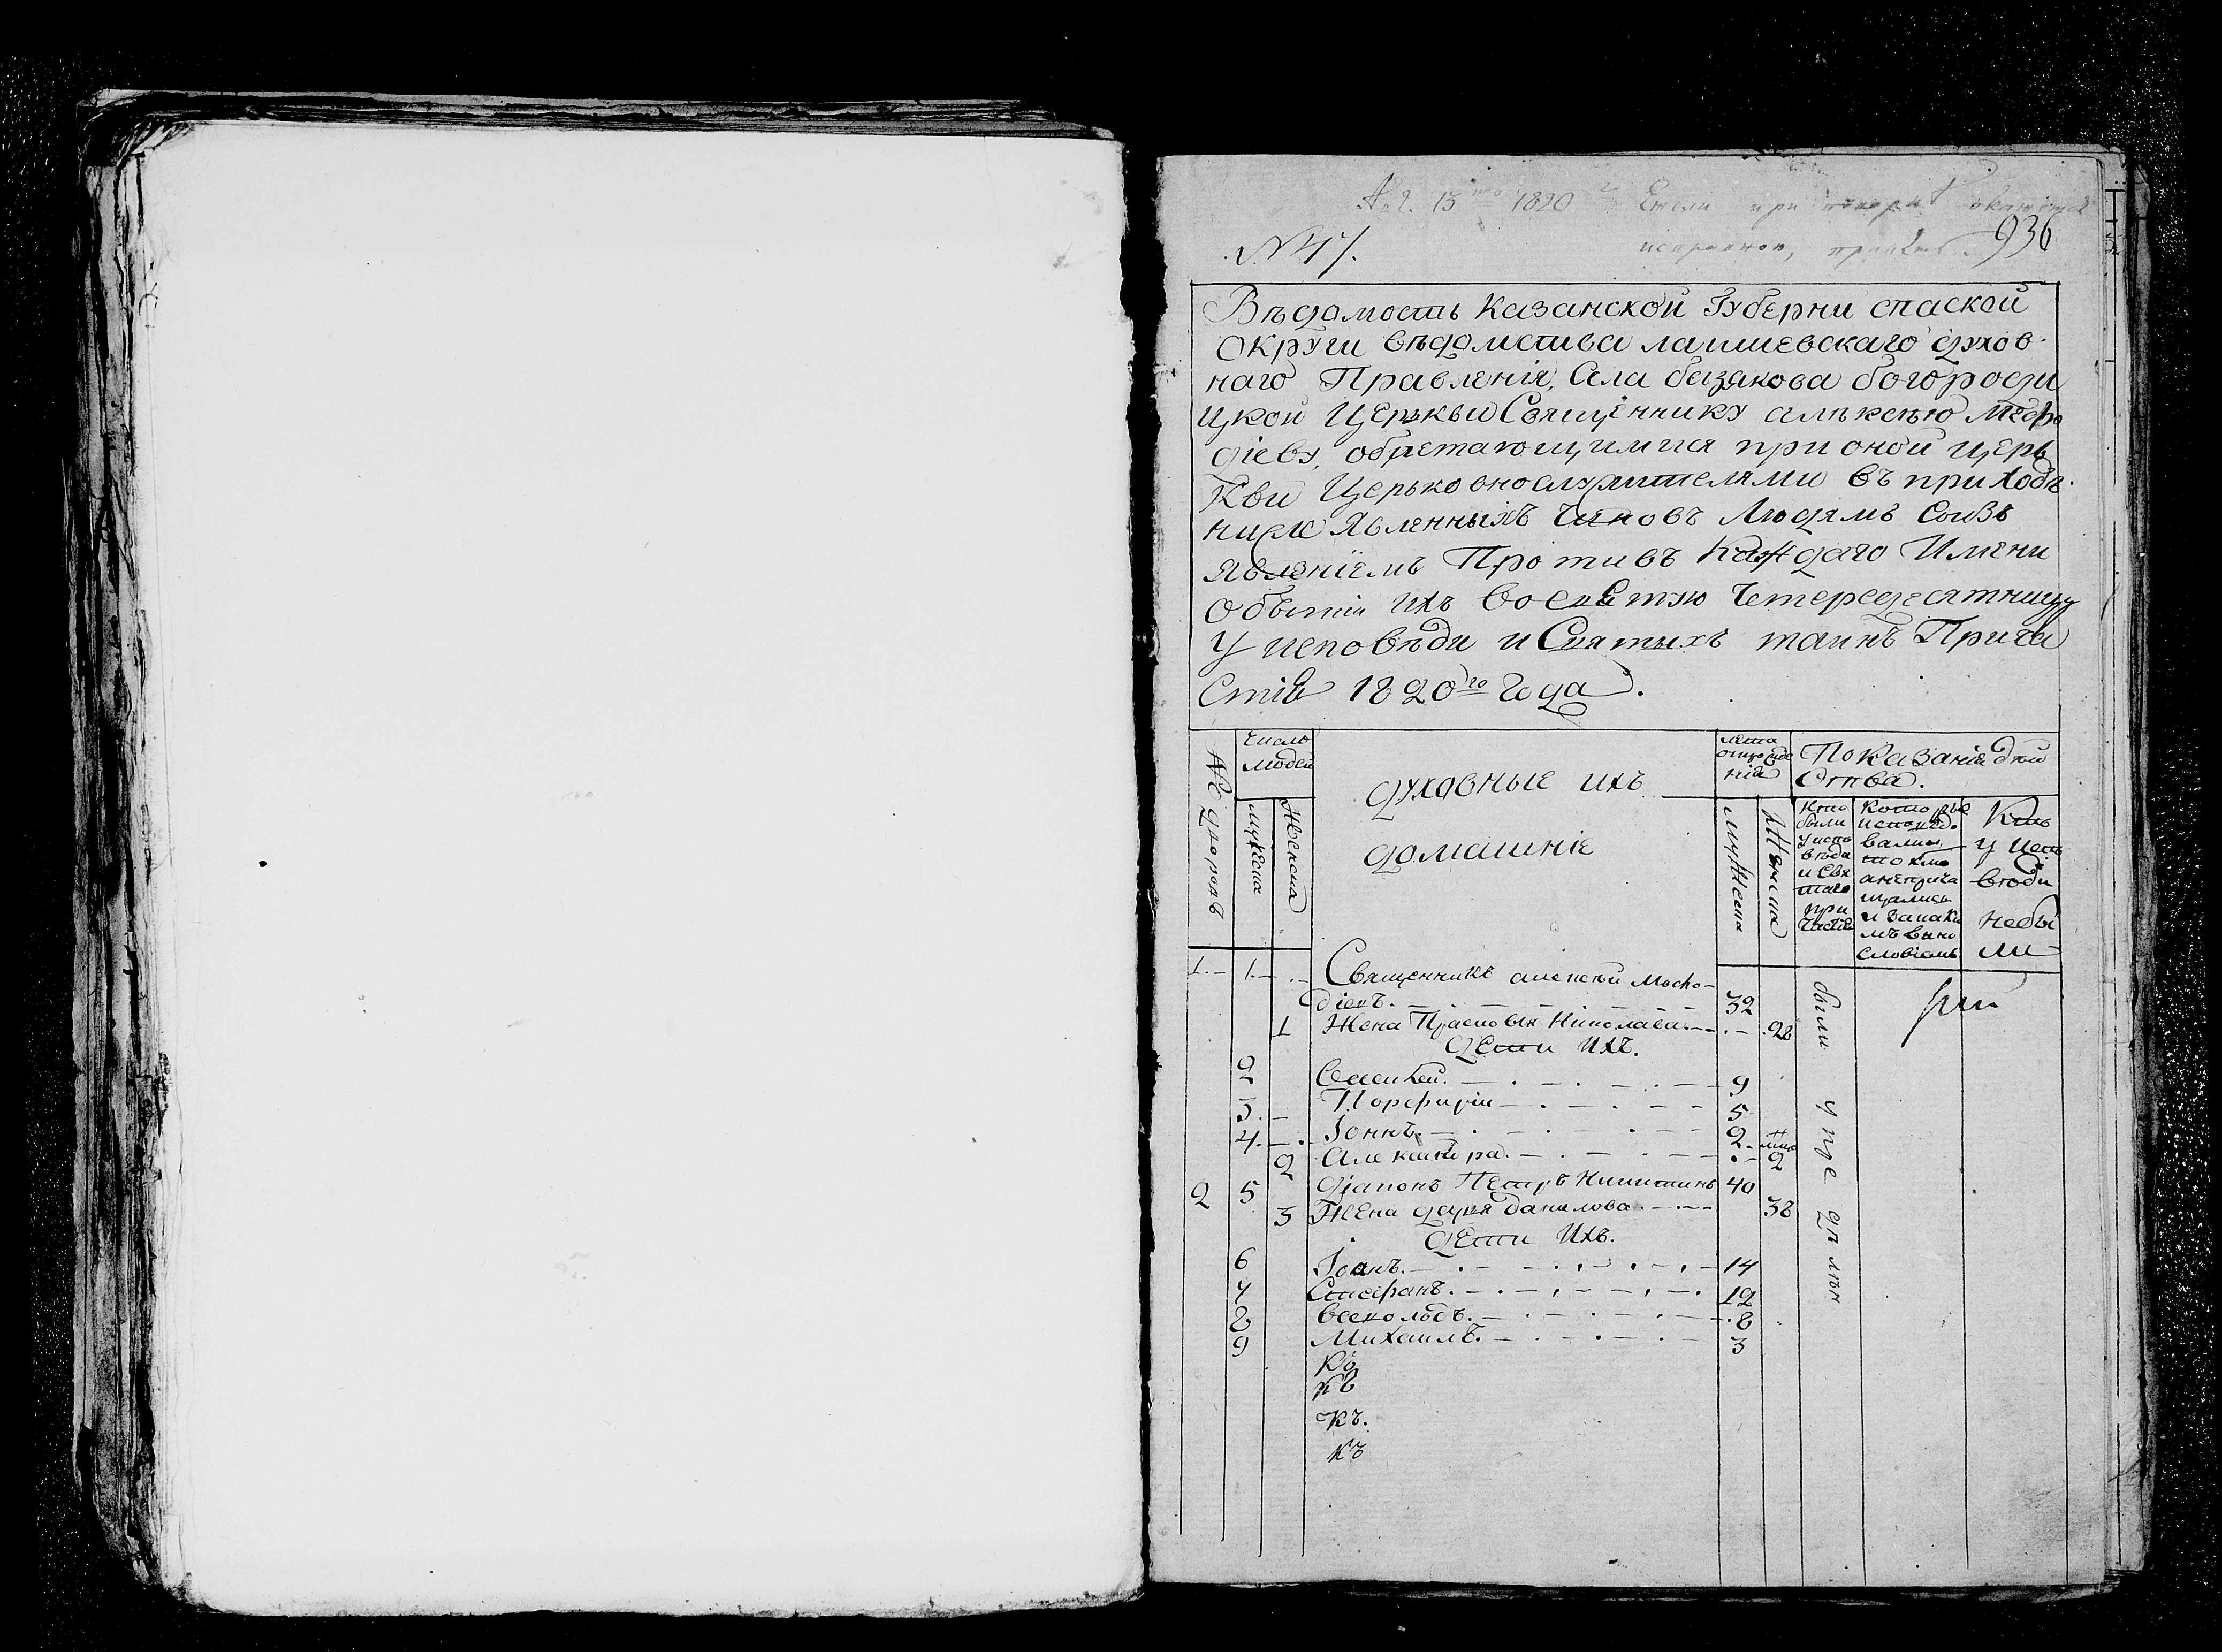 Авг. 13 1820 Ежели при
936
исправною,
Вѣдомость Казанской Губерни спаской
Округи вѣдомства лаишевскаго духов
наго Правленія, Села базякова богороди
цкой Церькви Священнику алѣксѣю Меѳо
діеву, обретающимися при оной церь
Кви Церьковнослужителями въ приходѣ
ниже Явленныхъ Чиновъ Людямъ Соизъ
явленіемъ Противъ Каждаго Имени
Обытіи ихъ Восвятую Четередесятницу
У исповѣди и Святыхъ таинъ Прича
Стія 1820го Года.
№ дворовъ
Число
Людей
Мужеска
Женска
духовные ихъ
домашніе
лѣта
отрожде
нія
Мужеска
Женска
Показаніе дѣй
Ства.
Кто
были
у испо
вѣди
и Свя
таго
при
частія
Которые
исповедо
вались
токмо
анепріча
щались
и закаки
мъ вино
словіемъ
Кто
у испо
вѣди
небы
ли
1. 1. Священникъ алексѣй Меѳо-
діевъ. 32
1 Жена Прасковья Николаева 28
дети ихъ.
2 Василей. 9
3. Порфирій 5
4. Іоннъ 2.
2 Александра. 2
2 5 діаконъ Петръ Никитинъ 40
3 Жена дарья данилова 38
дети Ихъ.
6 Іоанъ. 14
7 Стефанъ. 12
8 Всеволодъ. 8
9 Михаилъ. 3
были у пре дѣлѣн
Къ
Къ
Къ.
Къ